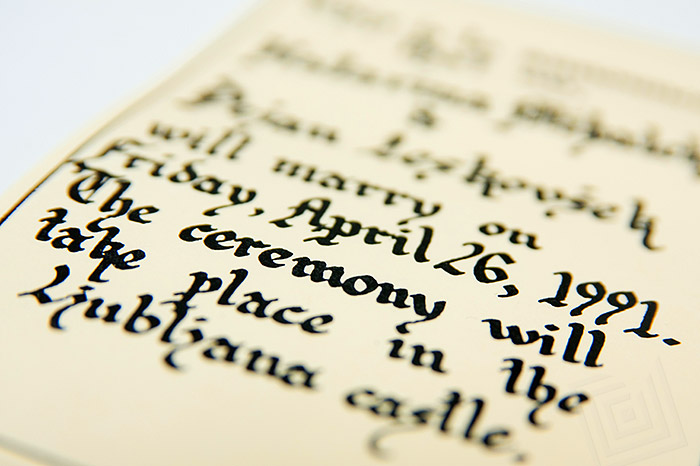 &
Dejan Leskovšek
will marry on
Friday, April 26, 1991.
The ceremony will
take place in the
Ljubljana castle.